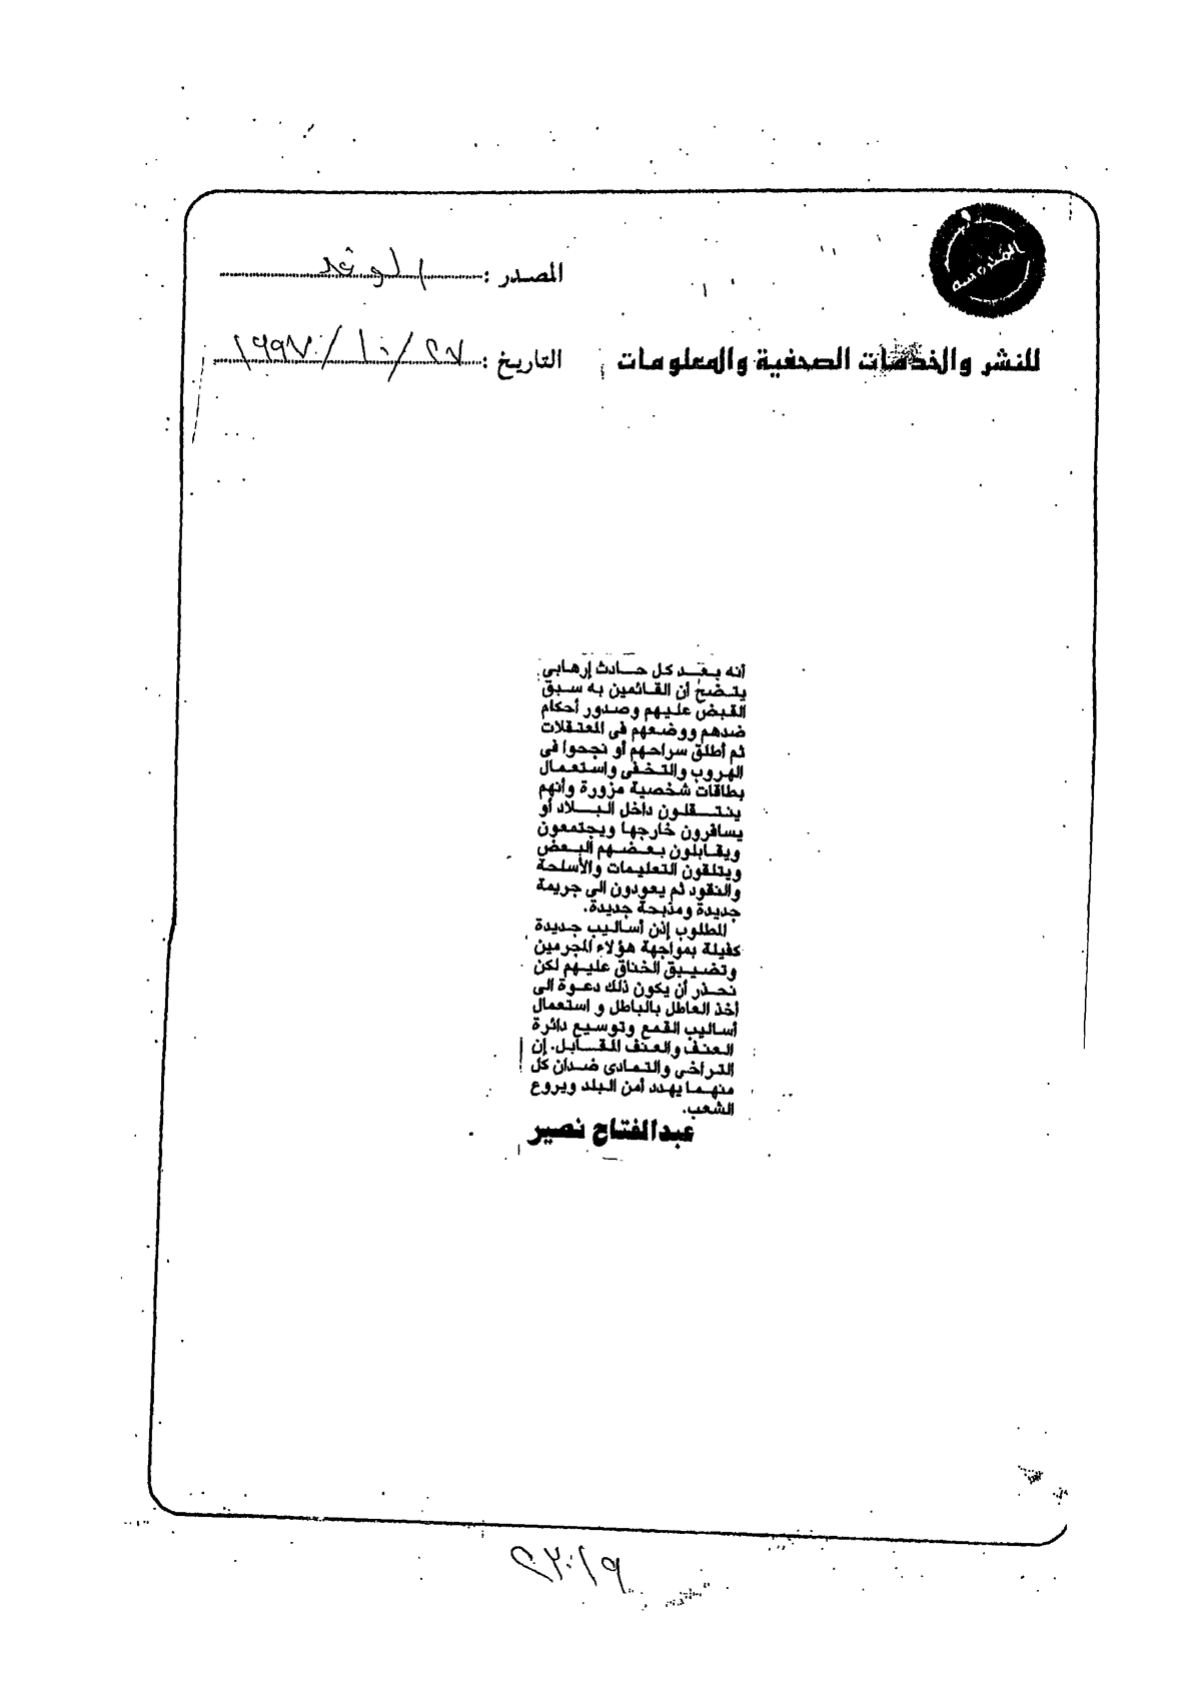 المصدر : الوفد
للنشر والخدمات الصحفية والمعلومات
التاريخ : ٢٧/١٠/١٩٩٧
أنه بعد كل حادث إرهابي
يتضح أن القائمين به سبق
القبض عليهم وصدور أحكام
ضدهم ووضعهم فى المعتقلات
ثم أطلق سراحهم أو نجحوا فى
الهروب والتخفى واستعمال
بطاقات شخصية مزورة وأنهم
ينتقلون داخل البلاد أو
يسافرون خارجها ويجتمعون
ويقابلون بعضهم البعض
ويتلقون التعليمات والأسلحة
والنقود ثم يعودون الى جريمة
جديدة ومذبحة جديدة.
المطلوب إذن أساليب جديدة
كفيلة بمواجهة هؤلاء المجرمين
وتضييق الخناق عليهم لكن
نحذر أن يكون ذلك دعوة الى
أخذ العاطل بالباطل و استعمال
أساليب القمع وتوسيع دائرة
العنف والعنف المقابل. إن
التراخى والتمادى ضدان كل
منهما يهدد أمن البلد ويروع
الشعب.
عبدالفتاح نصير